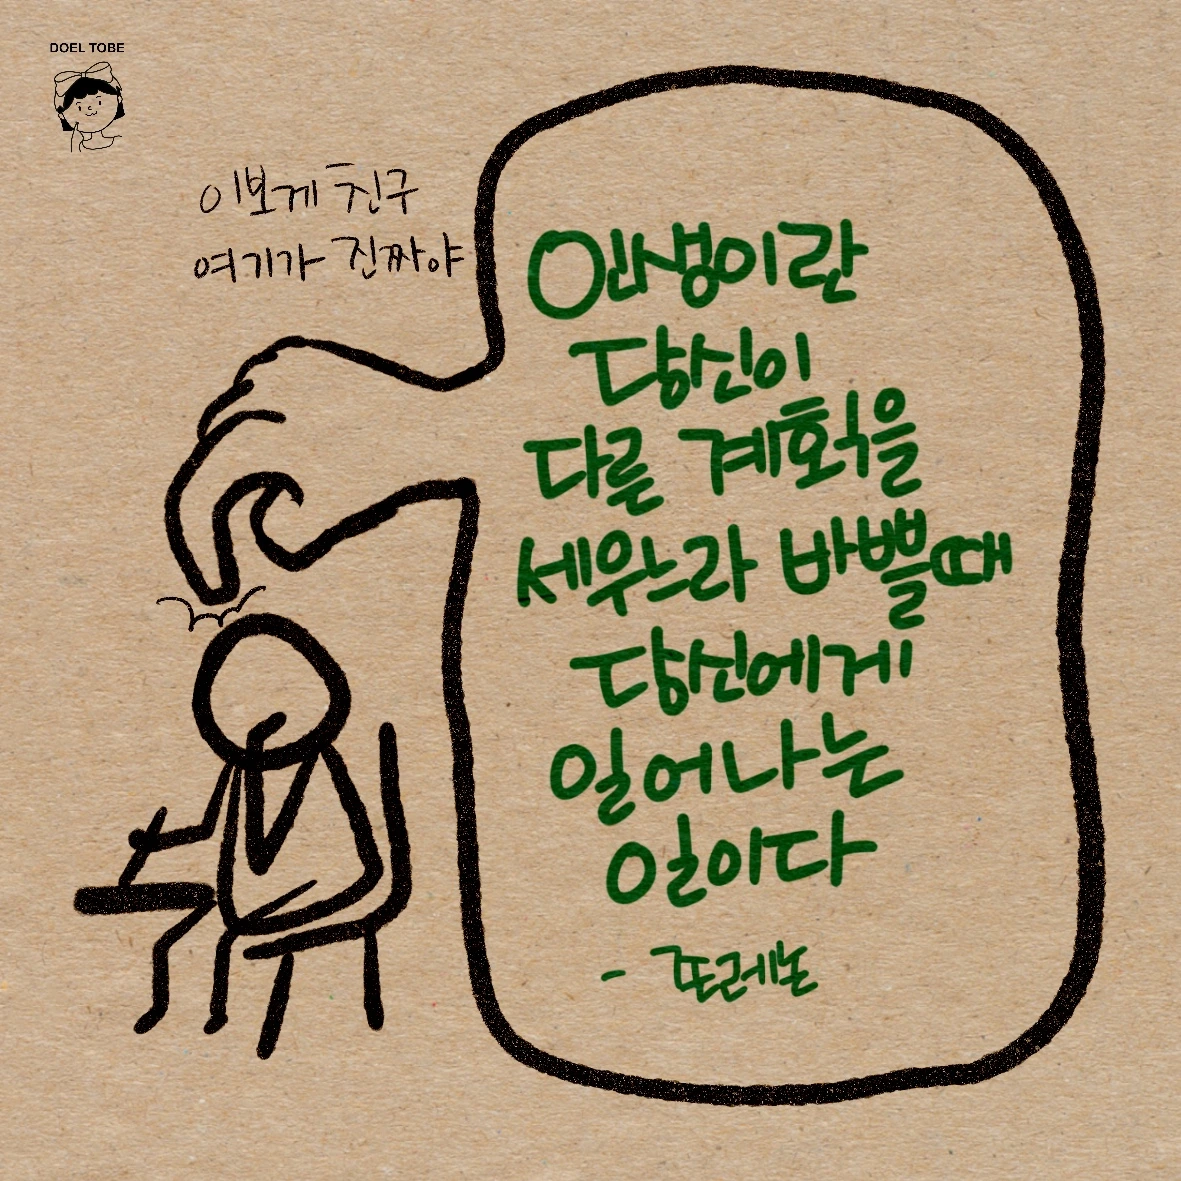 DOEL TOBE
이보게 친구
여기가 진짜야
인생이란
당신이
다른 계획을
세우느라 바쁠때
당신에게
일어나는
일이다
- 죤레논